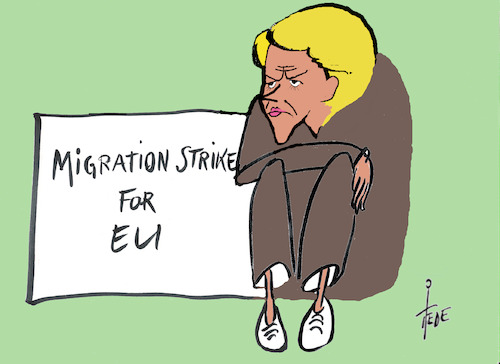 MIGRATION STRIKE
FOR
EU
TIEDE